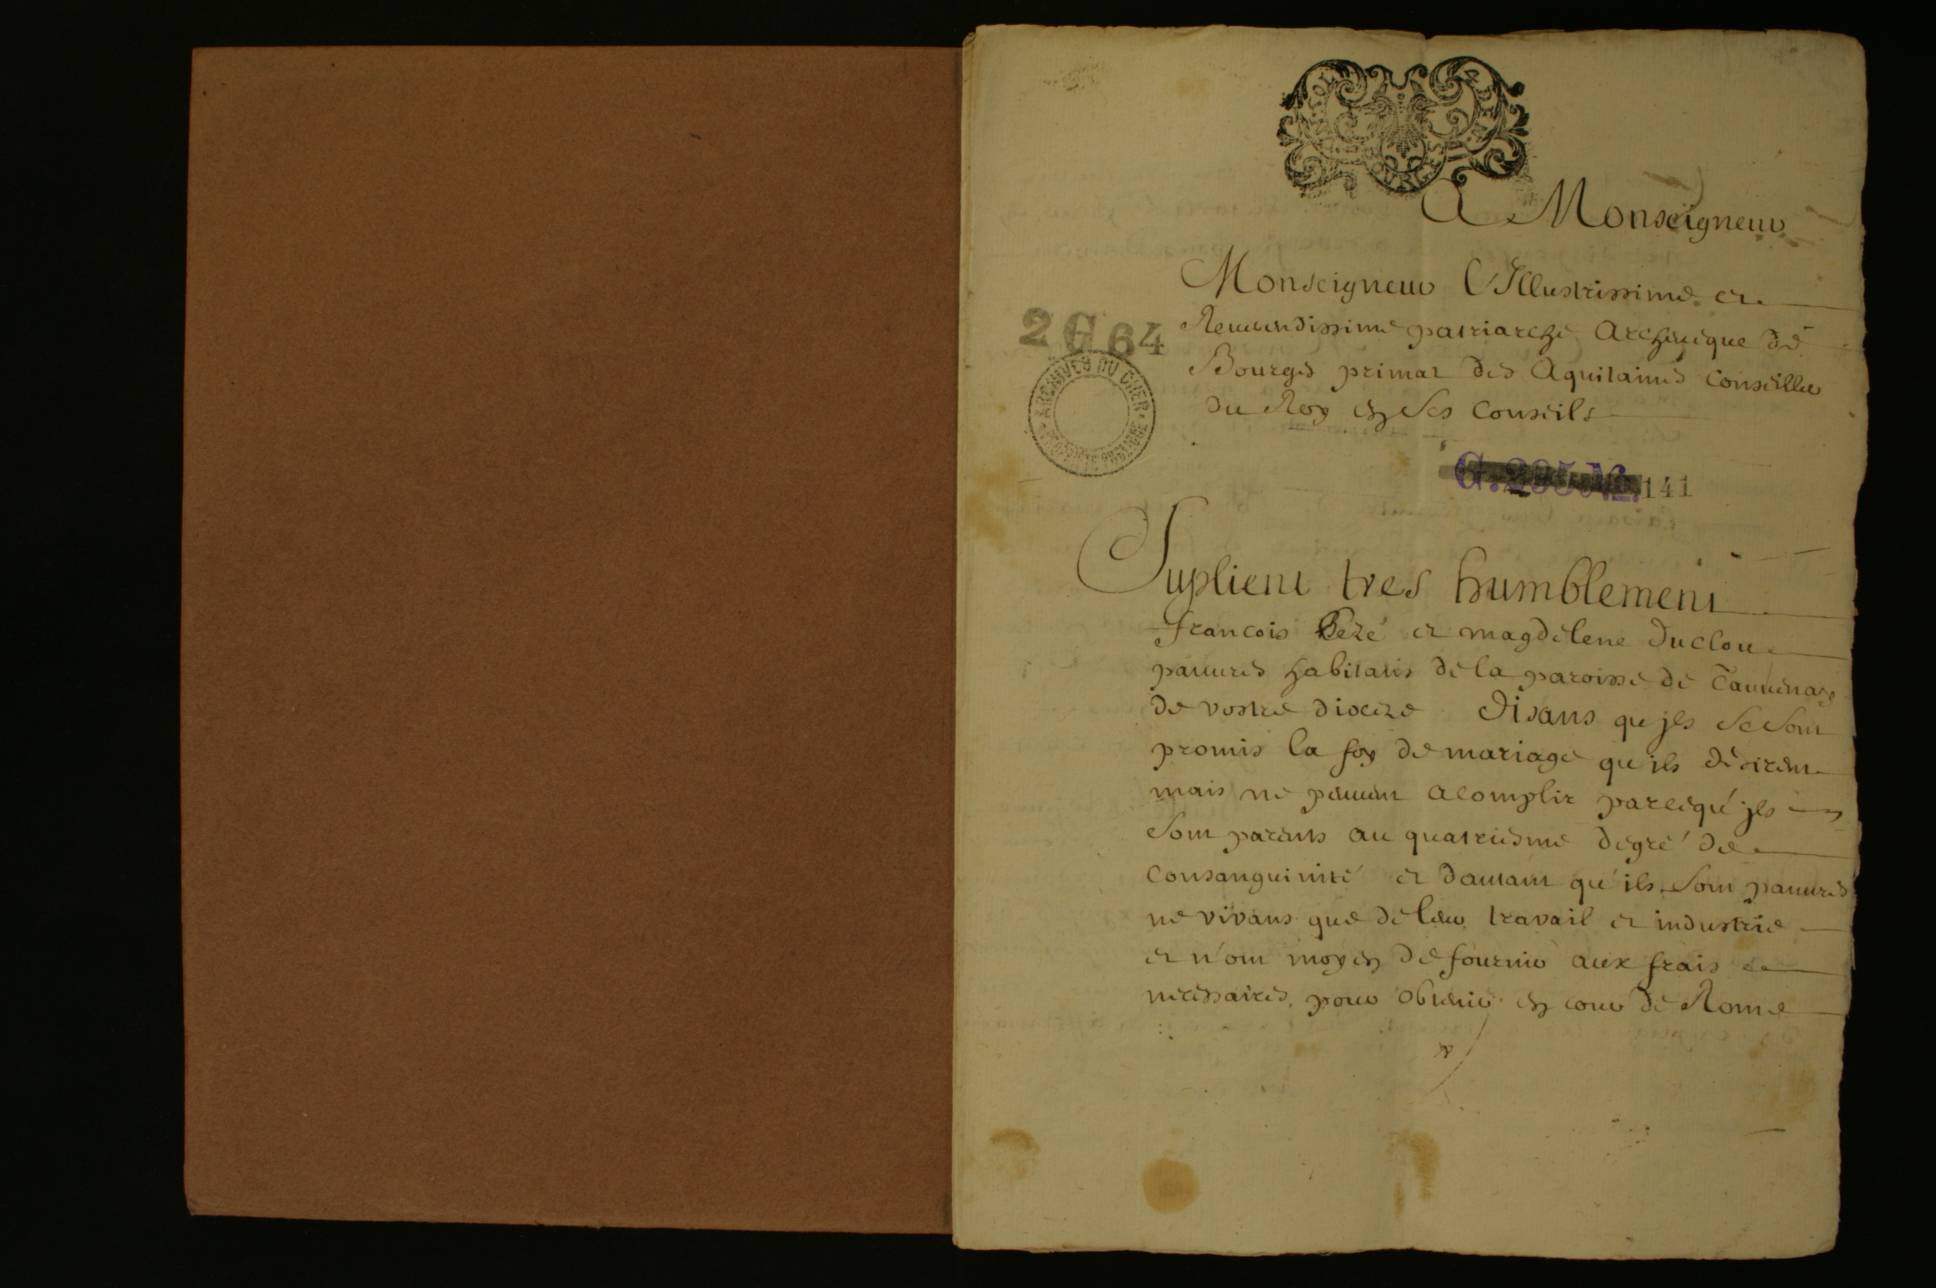 BOURGES
A Monseigneur
Monseigneur L'Illustrissime et
Reuerendissime patriarche Archeueque de
Bourges primat des Aquitaines Conseiller
du Roy en Ses Conseils
2 G 64
ARCHIVES DU CHER
G. 295 No. 141
Suplient tres humblement
francois et magdelene duclou
pauures habitans de la paroisse de
de vostre dioceze disans qu'jls se sont
promis la foy de mariage qu'ils desirent
mais ne peuuent acomplir parcequ'jls
sont parents au quatriesme degré de
consanguinité et dautant qu'ils sont pauures
ne vivans que de leur travail et industrie
et n'ont moyen de fournir aux frais
necessaires pour obtenir en cour de Rome